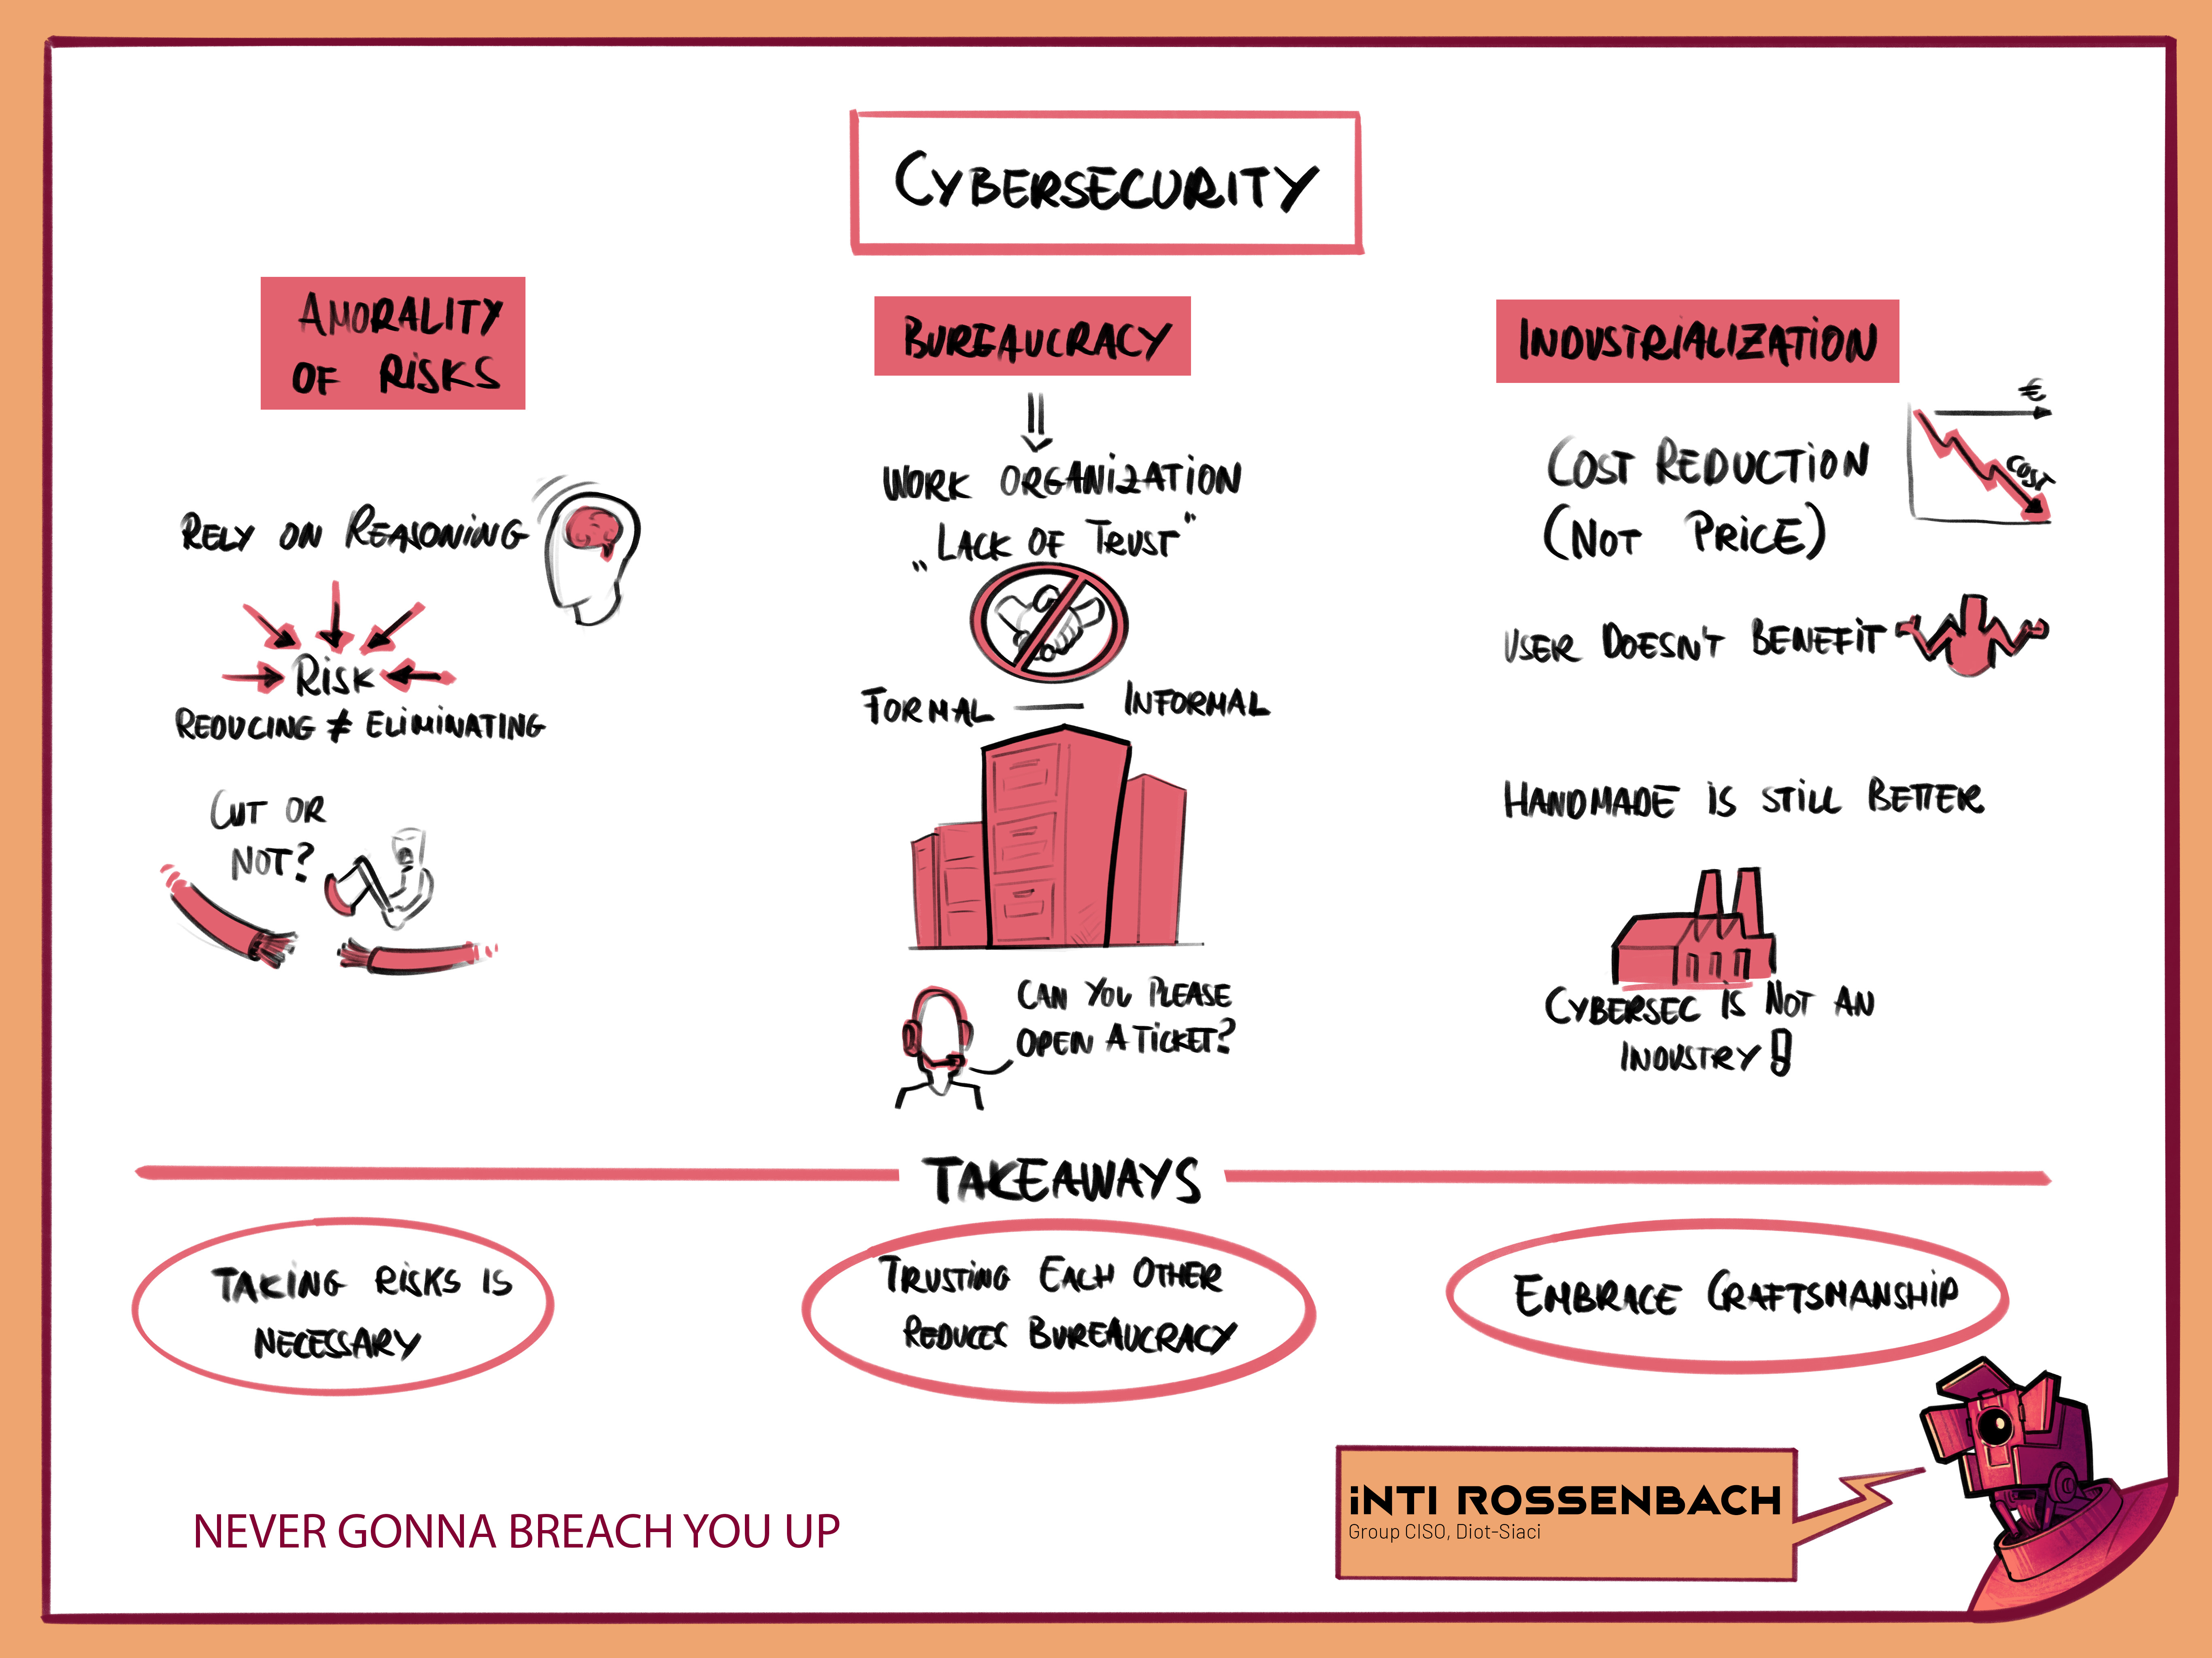 CYBERSECURITY
AMORALITY
OF RISKS
RELY ON REASONING
RISK
REDUCING ≠ ELIMINATING
CUT OR
NOT?
BUREAUCRACY
WORK ORGANIZATION
„LACK OF TRUST"
FORMAL — INFORMAL
CAN YOU PLEASE
OPEN A TICKET?
INDUSTRIALIZATION
€
COST
COST REDUCTION
(NOT PRICE)
USER DOESN'T BENEFIT
HANDMADE IS STILL BETTER
CYBERSEC IS NOT AN
INDUSTRY!
TAKEAWAYS
TAKING RISKS IS
NECESSARY
TRUSTING EACH OTHER
REDUCES BUREAUCRACY
EMBRACE CRAFTSMANSHIP
NEVER GONNA BREACH YOU UP
iNTI ROSSENBACH
Group CISO, Diot-Siaci